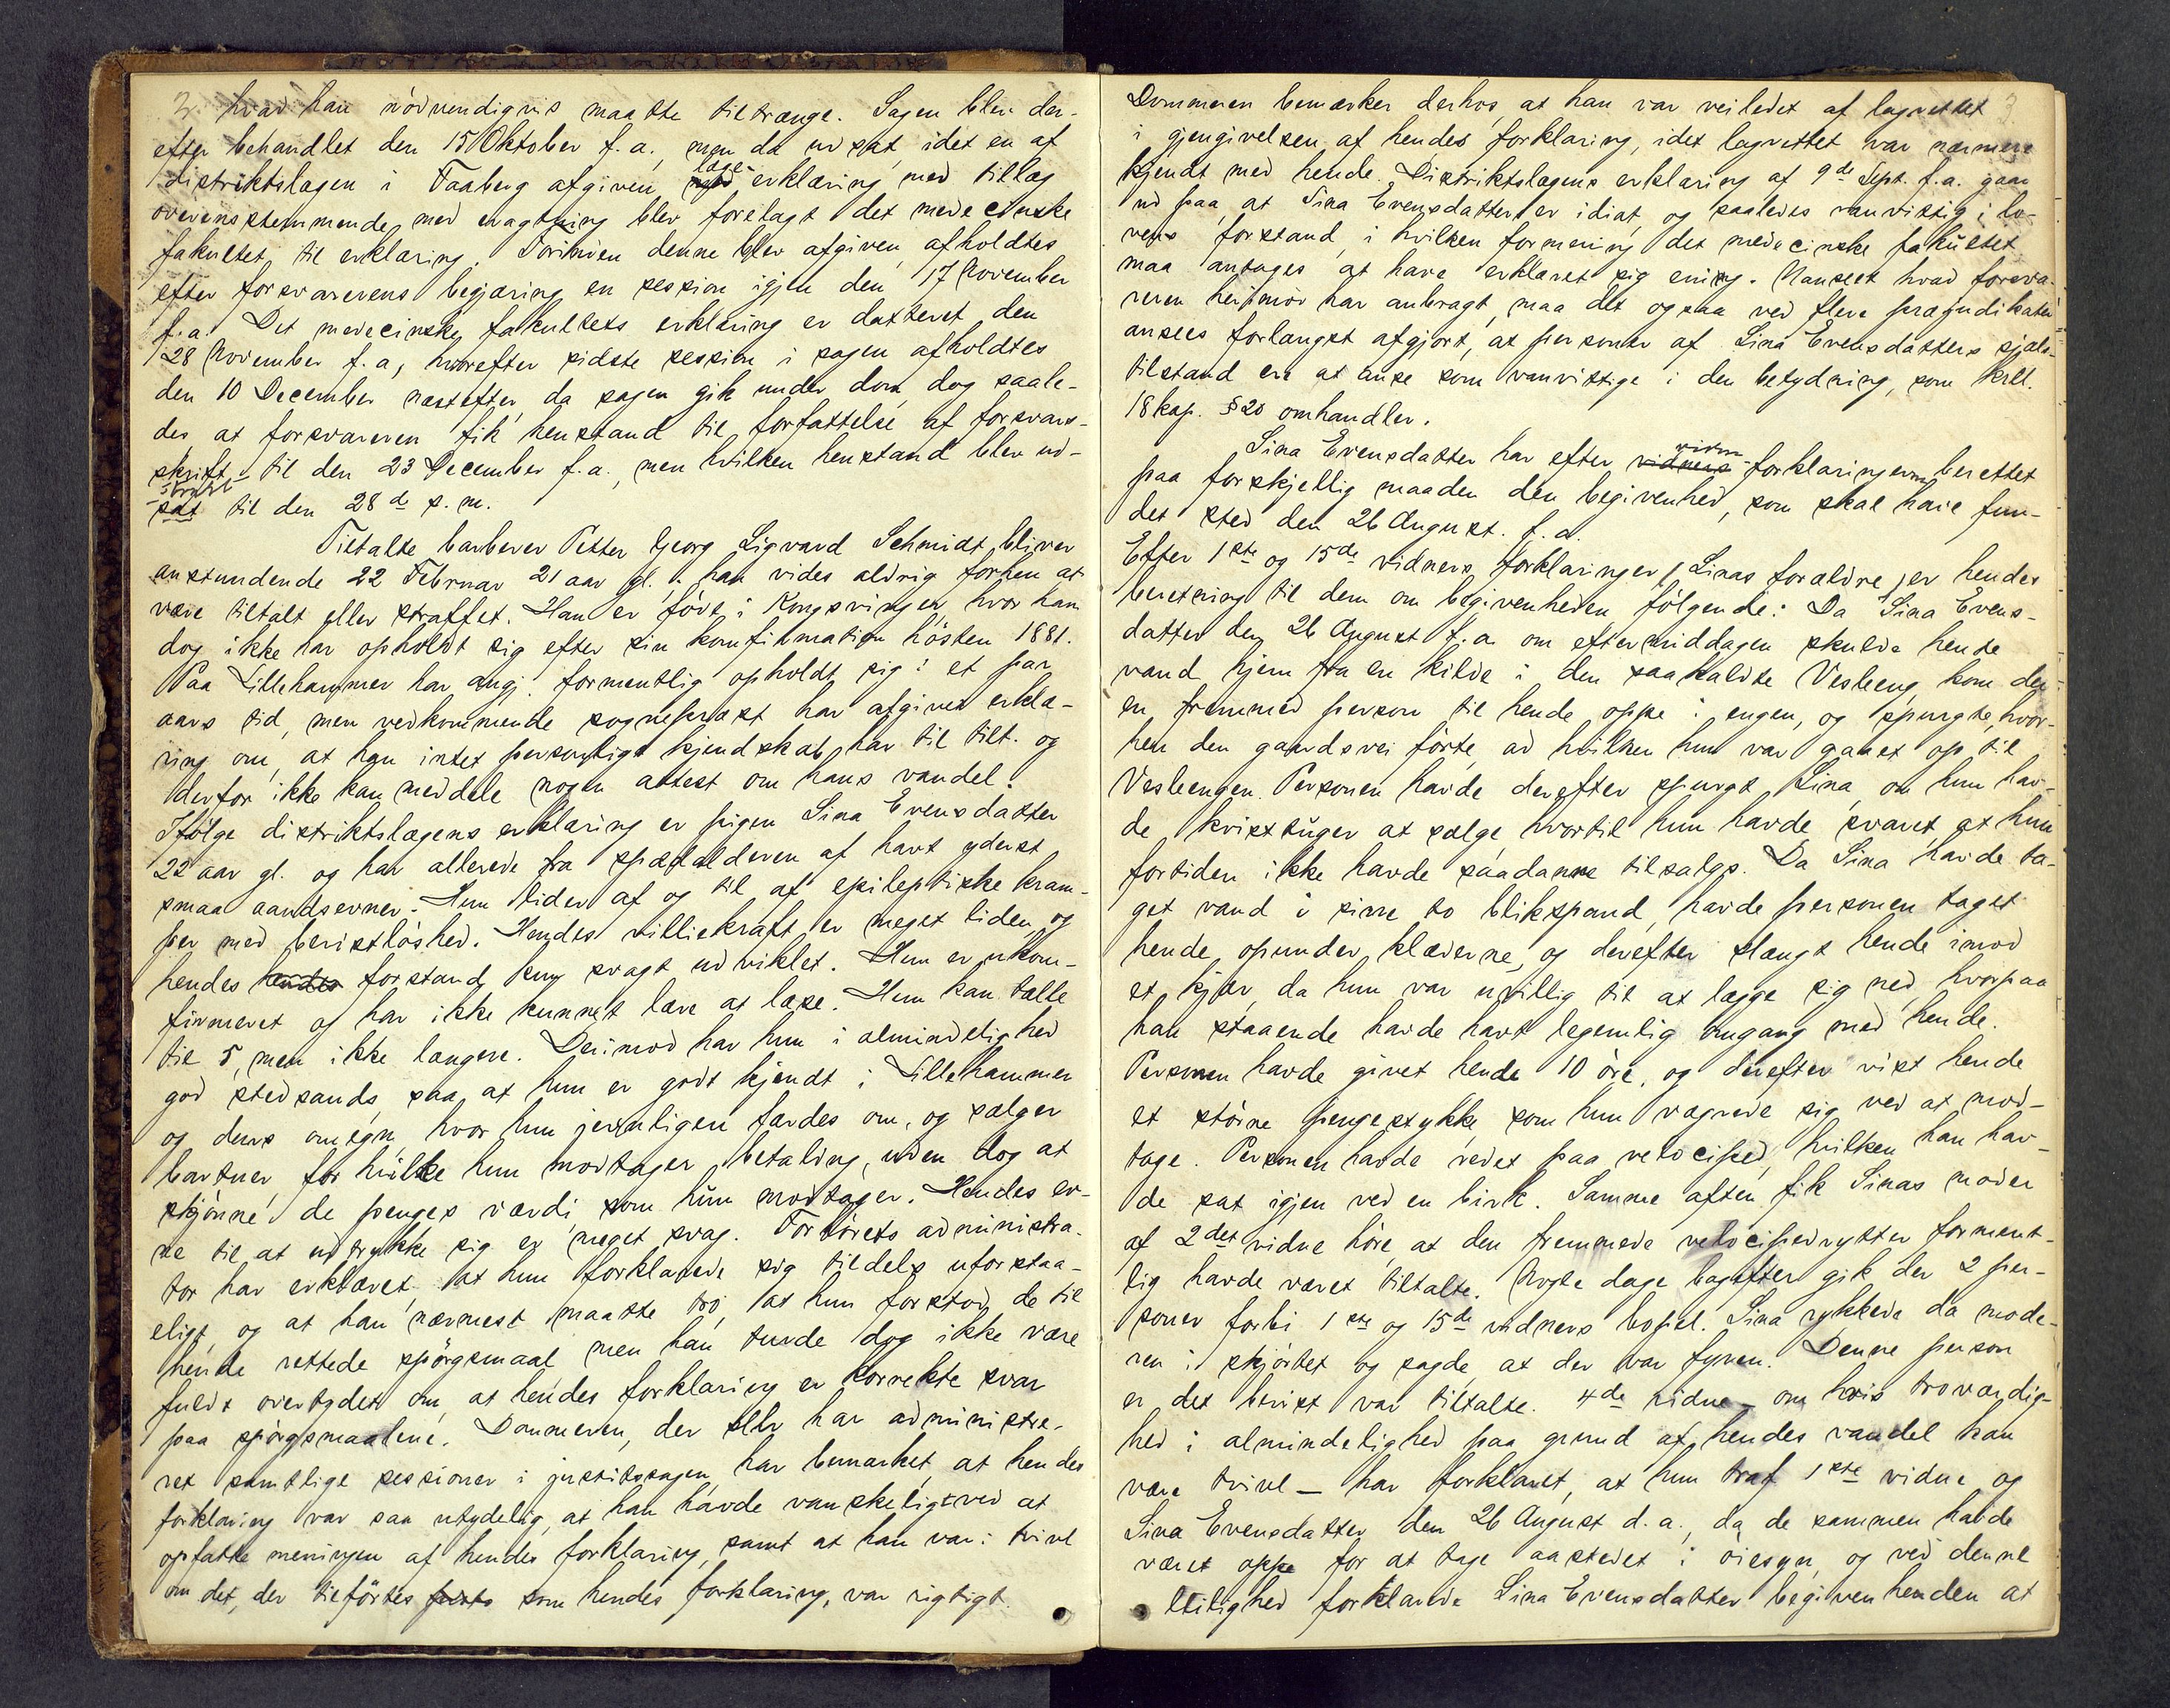 2. hvad han nödvendigvis maatte tiltrænge. Sagen blev der-
efter behandlet den 15 Oktober f. a., men da udsat, idet en af
distriktslægen i Faaberg afgiven læge-erklæring med tillæg
overensstemmende med eragtning blev forelagt det medecinske
fakultet til erklæring. Forinden denne blev afgiven, afholdtes
efter forsvarerens begjæring en session igjen den 17 November
f. a. Det medecinske fakultets erklæring er datteret den
28 November f. a., hvorefter sidste session i sagen afholdtes
den 10 December næstefter, da sagen gik under dom, dog saale-
des at forsvareren fik henstand til forfattelse af forsvars-
skrift til den 23 December f. a., men hvilken henstand blev ud-
strakt til den 28de s. m.
Tiltalte barberer Petter Georg Sigvard Schmidt bliver
anstundende 22 Februar 21 aar gl. han vides aldrig forhen at
være tiltalt eller straffet. Han er född i Kongsvinger, hvor han
dog ikke har opholdt sig efter sin konfirmation hösten 1881.
Paa Lillehammer har angj. formentlig opholdt sig i et par
aars tid, men vedkommende sogneprest har afgivet erklæ-
ring om, at han intet personligt kjendskab har til tilt. og
derfor ikke kan meddele nogen attest om hans vandel.
Ifölge distriktslægens erklæring er pigen Sina Evensdatter
22 aar gl. og har allerede fra spædalderen af havt yderst
smaa aandsevner. Hun lider af og til af epileptiske kram-
per med bevistlöshed. Hendes villiekraft er meget liden og
hendes hendes forstand kun svagt udviklet. Hun er ukon-
firmeret og har ikke kunnet lære at læse. Hun kan tælle
til 5, men ikke længere. Derimod har hun i almindelighed
god stedsands, saa at hun er godt kjendt i Lillehammer
og dens omegn, hvor hun jevnligen færdes om, og sælger
bartuer, for hvilke hun modtager betaling, uden dog at
skjönne de penges værdi, som hun modtager. Hendes ev-
ne til at udtrykke sig er meget svag. Forhörets administra-
tor har erklæret, at hun forklarede sig tildels uforstaa-
eligt, og at han nærmest maatte tro, at hun forstod de til
hende rettede spörgsmaal men han turde dog ikke være
fuldt overtydet om, at hendes forklaring er korrekte svar
paa spörgsmaalene. Dommeren, der selv har administre-
ret samtlige sessioner i justitssagen, har bemærket, at hendes
forklaring var saa utydelig, at han havde vanskeligt ved at
opfatte meningen af hendes forklaring, samt at han var i tvivl
om det, der tilförtes som hendes forklaring, var rigtigt.
Dommeren bemærker derhos, at han var veiledet af lagrettet 3
i gjengivelsen af hendes forklaring, idet lagrettet var nærmere
kjendt med hende. Distriktslægens erklæring af 9de Sept. f. a. gaar
ud paa, at Sina Evensdatter er idiot, og saaledes vanvittig i lo-
vens forstand, i hvilken formening det medecinske fakultet
maa antages at have erklæret sig enig. Uanseet hvad forsva-
reren herimod har anbragt, maa det ogsaa ved flere præjudikater
ansees forlængst afgjort, at personer af Sina Evensdatters sjæls-
tilstand ere at anse som vanvittige i den betydning, som krll.
18 kap. § 20 omhandler.
Sina Evensdatter har efter vidners vidne-forklaringerne berettet
paa forskjellig maaden den begivenhed, som skal have fun-
det sted den 26 August. f. a.
Efter 1ste og 15de vidners forklaringer, Sinas forældre, er hendes
beretning til dem om begivenheden fölgende: Da Sina Evens-
datter den 26 August f. a. om eftermiddagen skulde hente
vand hjem fra en kilde i den saakaldte Vesleeng, kom der
en fremmed person til hende oppe i engen, og spurgte, hvor-
hen den gaardsvei förte, ad hvilken hun var gaaet op til
Vesleengen. Personen havde derefter spurgt Sina, om hun hav-
de kvisttuger at sælge, hvortil hun havde svaret, at hun
fortiden ikke havde saadanne tilsalgs. Da Sina havde ta-
get vand i sine to blikspand, havde personen taget
hende opunder klæderne, og derefter slængt hende imod
et kjær, da hun var uvillig til at lægge sig ned, hvorpaa
han staaende havde havt legemlig omgang med hende.
Personen havde givet hende 10 öre, og derefter vist hende
et större pengestykke, som hun vægrede sig ved at mod-
tage. Personen havde redet paa velociped, hvilken han hav-
de sat igjen ved en birk. Samme aften fik Sinas moder
af 2det vidne höre, at den fremmede velocipedrytter forment-
lig havde været tiltalte. Nogle dage bagefter gik der 2 per-
soner forbi 1ste og 15de vidners bopæl. Sina rykkede da mode-
ren i skjörtet og sagde, at der var fyren. Denne person
er det bevist var tiltalte. 4de vidne – om hvis troværdig-
hed i almindelighed paa grund af hendes vandel kan
være tvivl – har forklaret, at hun traf 1ste vidne og
Sina Evensdatter den 26 August d. a., da de sammen havde
været oppe for at tage aastedet i öiesyn, og ved denne
leilighed forklarede Sina Evensdatter begivenheden at